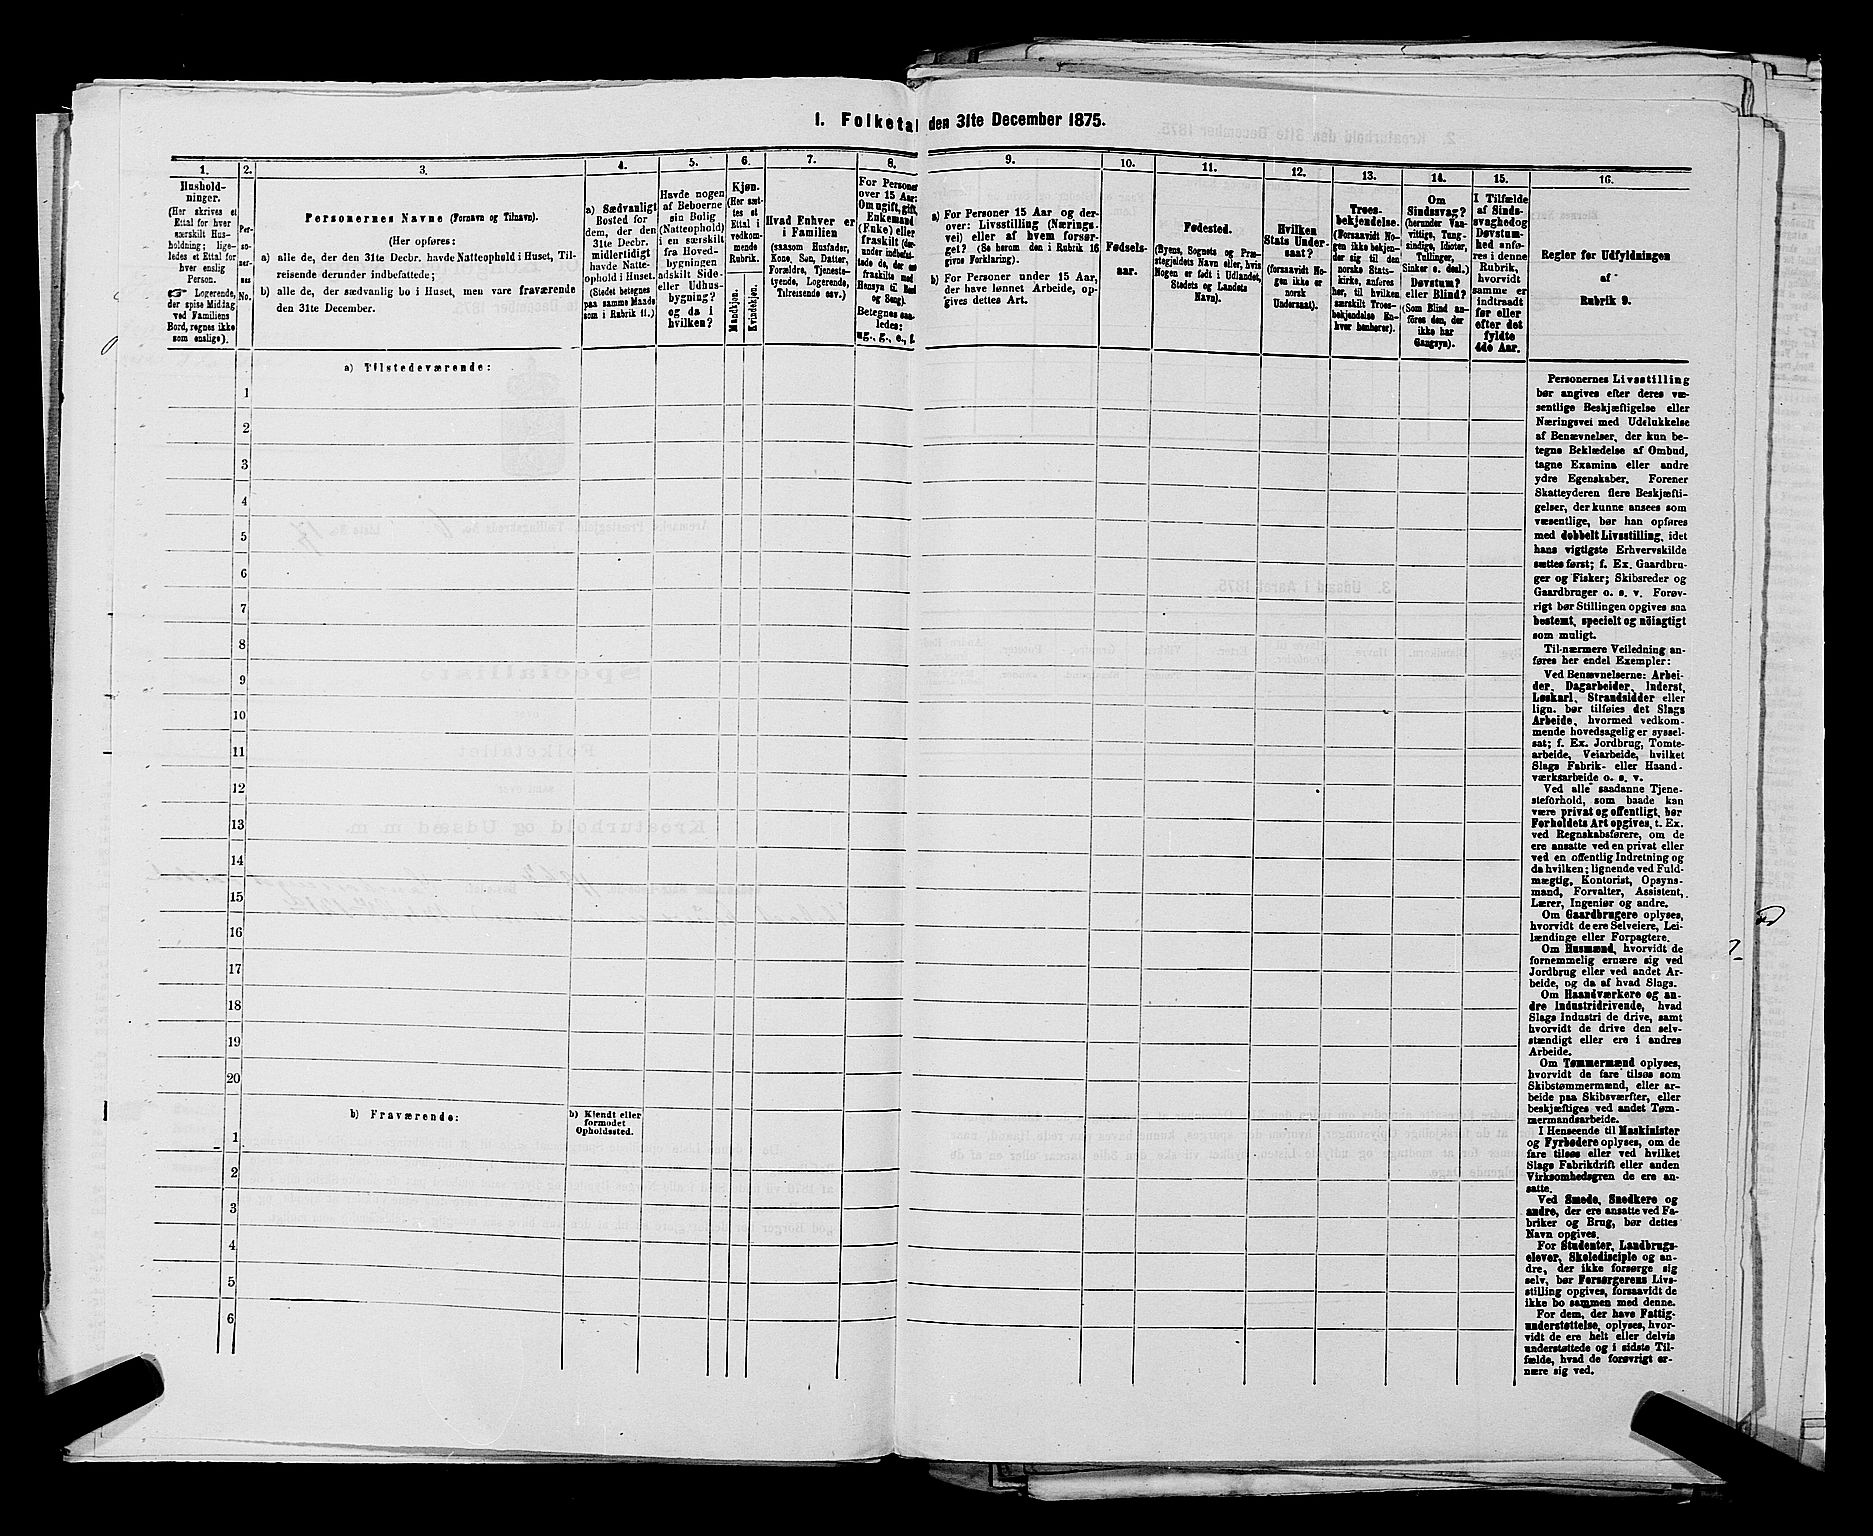 1. Folketal den 31te December 1875.
1.
Hushold-
ninger.
(Her skrives et
Ettal for hver
særskilt Hus-
holdning; lige-
ledes et Ettal for
hver enslig
Person.
☞ Logerende,
der spise Middag
ved Familiens
Bord, regnes ikke
som enslige).
2.
Per-
so-
ner-
nes
No.
3.
Personernes Navne (Fornavn og Tilnavn).
(Her opføres:
a) alle de, der den 31te Decbr. havde Natteophold i Huset, Til-
reisende derunder indbefattede;
b) alle de, der sædvanlig bo i Huset, men vare fraværende
den 31te December.
4.
a) Sædvanligt
Bosted for
dem, der den
31te Decbr.
midlertidigt
havde Natte-
ophold i Huset.
(Stedet betegnes
paa samme Maade
som i Rubrik 11.)
5.
Havde nogen
af Beboerne
sin Bolig
(Natteophold)
i en særskilt
fra Hoved-
bygningen
adskilt Side-
eller Udhus-
bygning?
og da i
hvilken?
6.
Kjøn.
(Her sæt-
tes et
Ettal i
vedkom-
mende
Rubrik.
Mandkjøn.
Kvindekjøn.
7.
Hvad Enhver er
i Familien
(saasom Husfader,
Kone, Søn, Datter,
Forældre, Tjeneste-
tyende, Logerende,
Tilreisende osv.)
8.
For Personer
over 15 Aar:
Om ugift, gift,
Enkemand
(Enke) eller
fraskilt (der-
under indbefat-
tede de, der ere
fraskilte med
Hensyn til Bord
og Seng).
Betegnes saa-
ledes:
ug., g., e., f.
9.
a) For Personer 15 Aar og der-
over: Livsstilling (Nærings-
vei) eller af hvem forsør-
get? (Se herom den i Rubrik 16
givne Forklaring).
b) For Personer under 15 Aar,
der have lønnet Arbeide, op-
gives dettes Art.
10.
Fødsels-
aar.
11.
Fødested.
(Byens, Sognets og Præ-
stegjeldets Navn eller, hvis
Nogen er født i Udlandet,
Stedets og Landets
Navn).
12.
Hvilken
Stats Under-
saat?
(forsaavidt No-
gen ikke er
norsk
Undersaat).
13.
Troes-
bekjendelse.
(Forsaavidt No-
gen ikke bekjen-
der sig til den
norske Stats-
kirke, anføres
her, til hvilken
særskilt Troes-
bekjendelse En-
hver henhører).
14.
Om
Sindssvag?
(herunder Van-
vittige, Tung-
sindige, Idioter,
Tullinger,
Sinker o. desl.)
Døvstum?
eller Blind?
(Som Blind an-
føres den, der
ikke har
Gangsyn).
15.
I Tilfælde
af Sinds-
svaghed og
Døvstum-
hed anfø-
res i denne
Rubrik,
hvorvidt
samme er
indtraadt
før eller
efter det
fyldte
4de Aar.
16.
Regler for Udfyldningen
af
Rubrik 9.
a) Tilstedeværende:
1
2
3
4
5
6
7
8
9
10
11
12
13
14
15
16
17
18
19
20
b) Fraværende:
b) Kjendt eller
formodet
Opholdssted.
1
2
3
4
5
6
Personernes Livsstilling
bør angives efter deres væ-
sentlige Beskjæftigelse eller
Næringsvei med Udelukkelse
af Benævnelser, der kun be-
tegne Beklædelse af Ombud,
tagne Examina eller andre
ydre Egenskaber. Forener
Skatteyderen flere Beskjæfti-
gelser, der kunne ansees som
væsentlige, bør han opføres
med dobbelt Livsstilling, idet
hans vigtigste Erhvervskilde
sættes først; f. Ex. Gaardbru-
ger og Fisker; Skibsreder og
Gaardbruger o. s. v. Forøv-
rigt bør Stillingen opgives saa
bestemt, specielt og nöiagtigt
som muligt.
Til nærmere Veiledning an-
føres her endel Exempler:
Ved Benævnelserne: Arbei-
der, Dagarbeider, Inderst,
Løskarl, Strandsidder eller
lign. bør tilføies det Slags
Arbeide, hvormed vedkom-
mende hovedsagelig er syssel-
sat; f. Ex. Jordbrug, Tomte-
arbeide, Veiarbeide, hvilket
Slags Fabrik- eller Haand-
værksarbeide o. s. v.
Ved alle saadanne Tjene-
steforhold, som baade kan
være privat og offentligt, bør
Forholdets Art opgives, t. Ex.
ved Regnskabsførere, om de
ere ansatte ved en privat eller
ved en offentlig Indretning og
da hvilken; lignende ved Fuld-
mægtig, Kontorist, Opsyns-
mand, Forvalter, Assistent,
Lærer, Ingeniør og andre.
Om Gaardbrugere oplyses,
hvorvidt de ere Selveiere, Lei-
lændinge eller Forpagtere.
Om Husmænd, hvorvidt de
fornemmelig ernære sig ved
Jordbrug eller ved andet Ar-
beide, og da af hvad Slags.
Om Haandværkere og an-
dre Industridrivende, hvad
Slags Industri de drive, samt
hvorvidt de drive den selv-
stændigt eller ere i andres
Arbeide.
Om Tømmermænd oplyses,
hvorvidt de fare tilsøs som
Skibstømmermænd, eller ar-
beide paa Skibsværfter, eller
beskjæftiges ved andet Tøm-
mermandsarbeide.
I Henseende til Maskinister
og Fyrbødere oplyses, om de
fare tilsøs eller ved hvilket
Slags Fabrikdrift eller anden
Virksomhedsgren de ere an-
satte.
Ved Smede, Snedkere og
andre, der ere ansatte ved Fa-
briker og Brug, bør dettes
Navn opgives.
For Studenter, Landbrugs-
elever, Skoledisciple og an-
dre, der ikke forsørge sig
selv, bør Forsørgerens Livs-
stilling opgives, forsaavidt de
ikke bo sammen med denne.
For dem, der have Fattig-
understøttelse, oplyses, hvor-
vidt de ere helt eller delvis
understøttede og i sidste Til-
fælde, hvad de forøvrigt er-
nære sig ved.